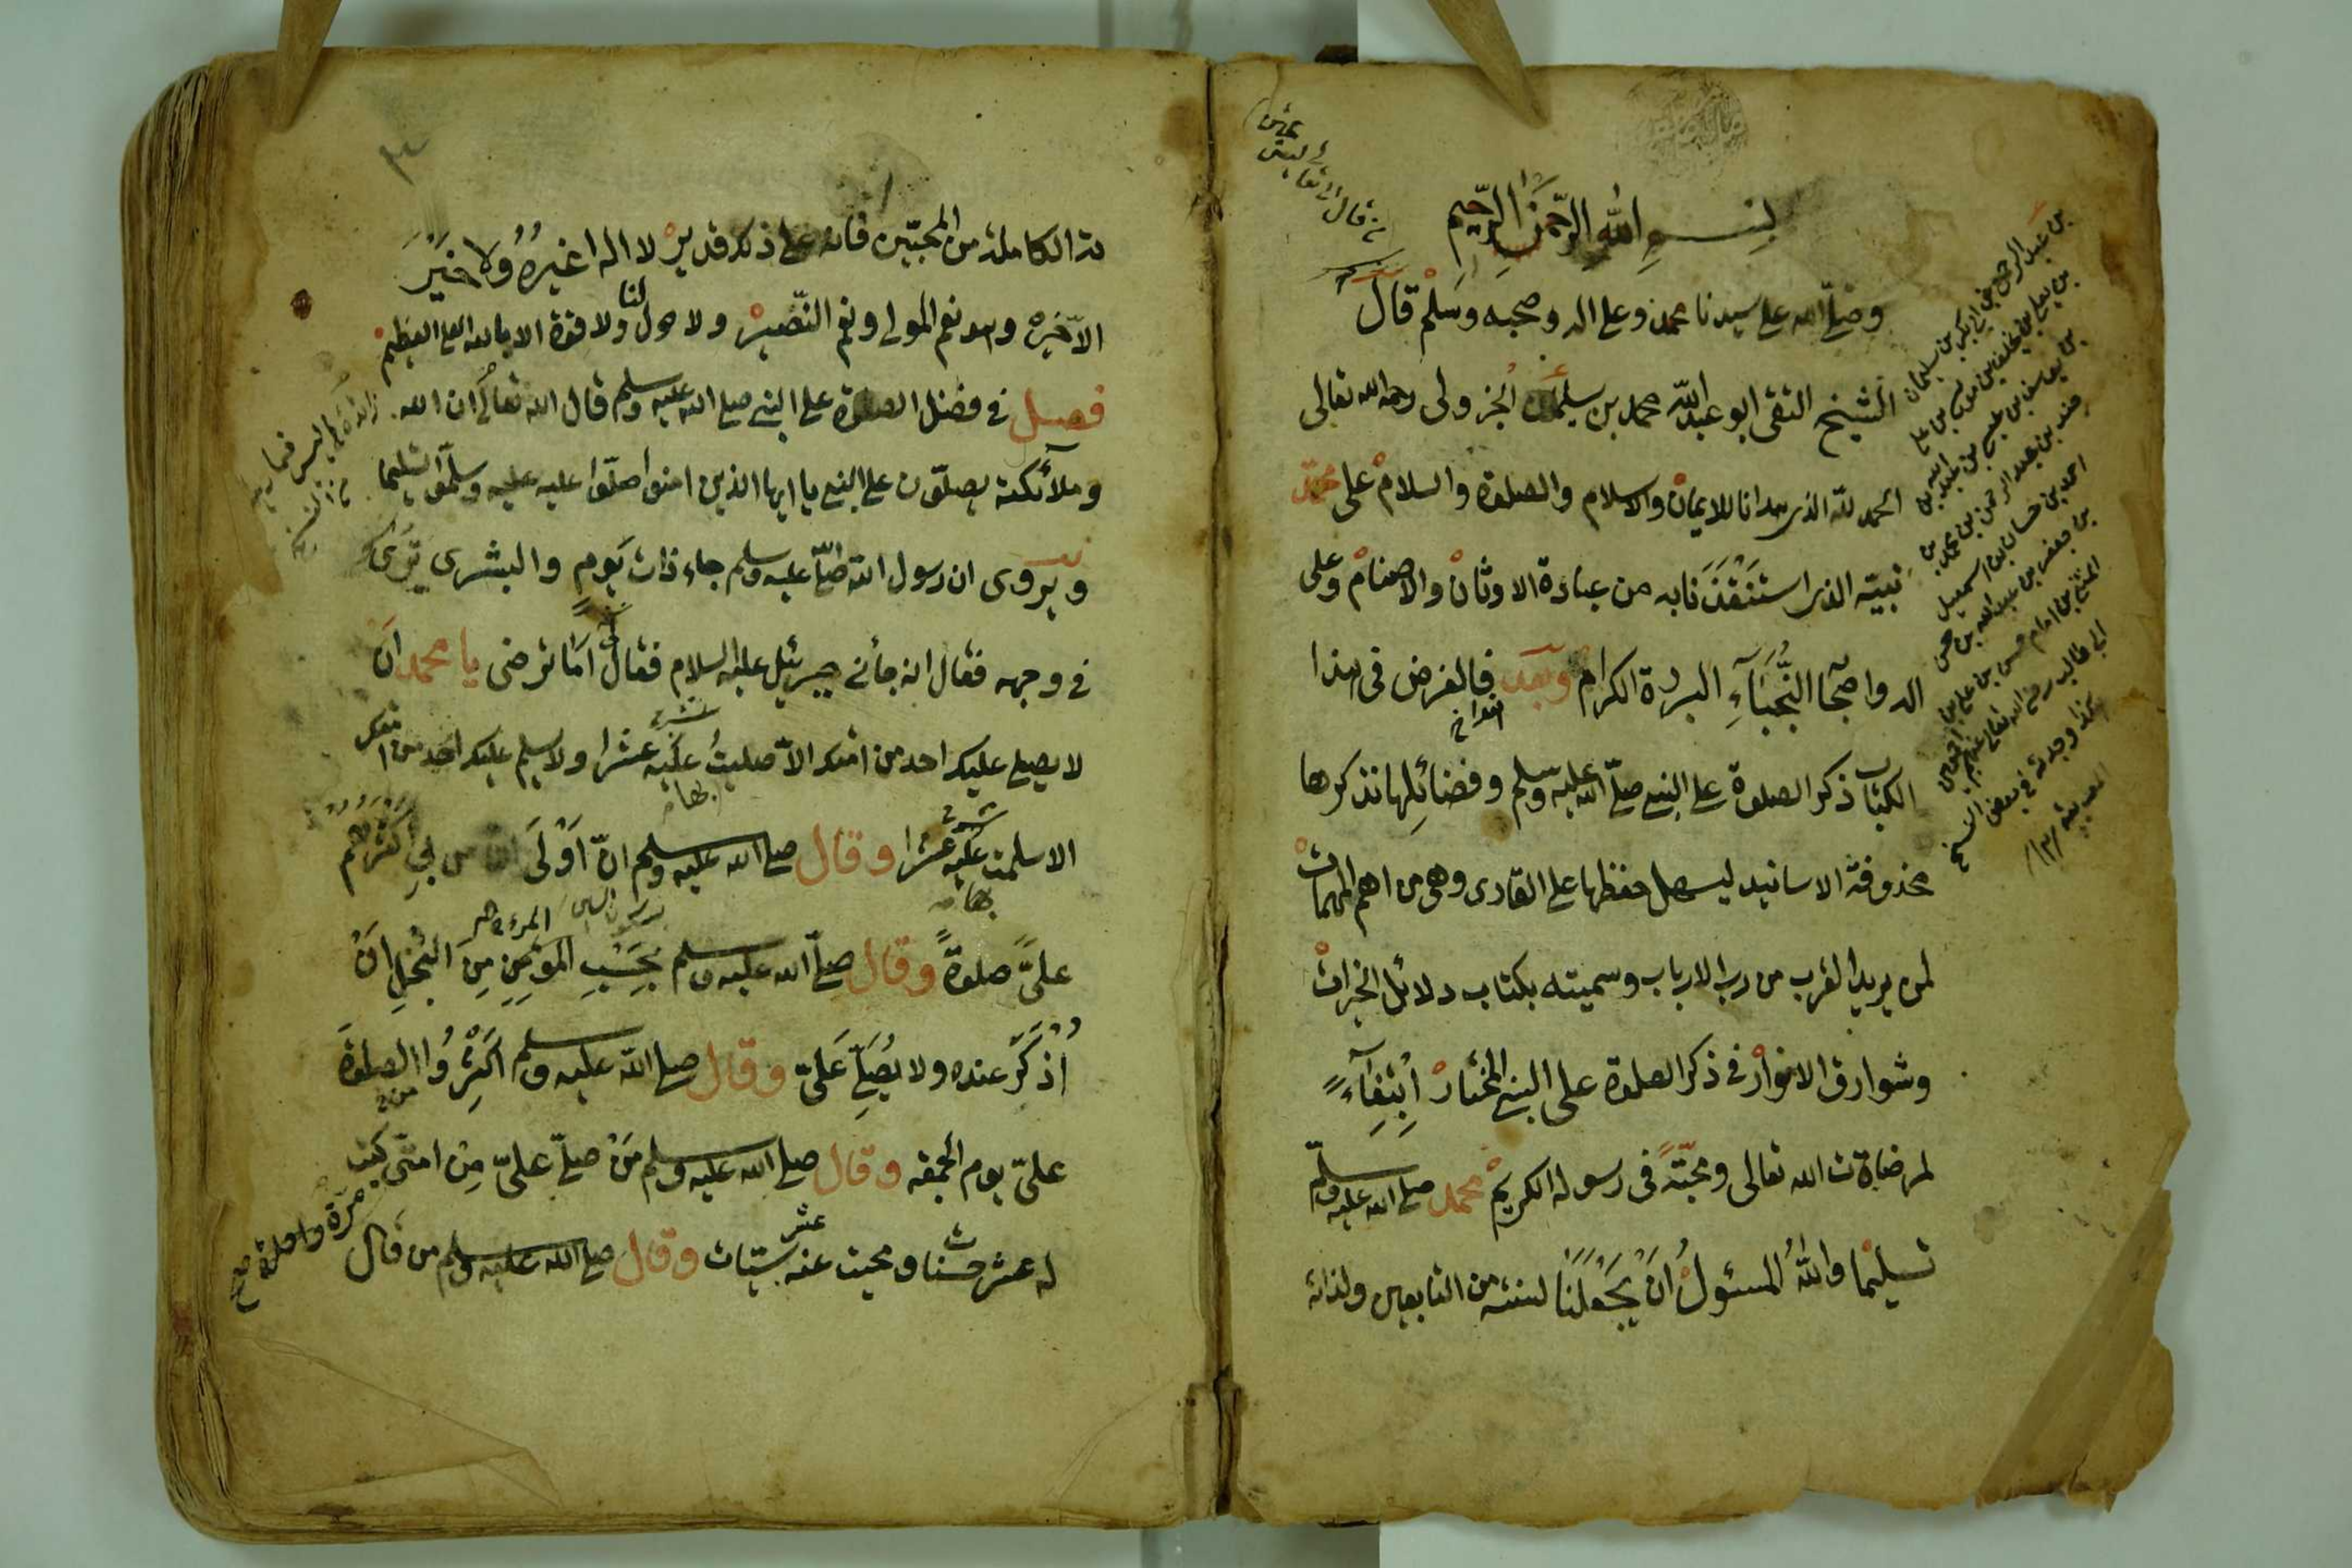 بسم الله الرحمن الرحيم
وصلى الله على سيدنا محمد وعلى اله وصحبه وسلم قال
الشيخ التقى ابو عبد الله محمد بن سليمان الجزولى رحمه الله تعالى
الحمد لله الذى هدانا للايمان والاسلام والصلوة والسلام على محمد
نبيه الذى استنقذنا به من عبادة الاوثان والاصنام وعلى
اله واصحابه النجباء البررة الكرام وبعد فالغرض فى هذا
الكتاب ذكر الصلوة على النبى صلى الله عليه وسلم وفضائلها نذكرها
محذوفة الاسانيد ليسهل حفظها على القارى وهى من اهم المهمات
لمن يريد القرب من رب الارباب وسميته بكتاب دلائل الخيرات
وشوارق الانوار فى ذكر الصلوة على النبى المختار ابتغاء
لمرضات الله تعالى ومحبة فى رسوله الكريم محمد صلى الله عليه وسلم
تسليما والله المسئول ان يجعلنا لسنته من التابعين ولذاته
بن عبد الرحمن بن ابى بكر بن سليمان
بن يعلى بن يخلف بن موسى بن على
بن يوسف بن عيسى بن عبد الله بن
جندوز بن عبد الرحمن بن محمد بن
احمد بن حسان بن اسمعيل
بن جعفر بن عبد الله بن حسن
المثنى بن امام حسن بن على بن
ابى طالب رضى الله تعالى عنهم اجمعين
هكذا وجدته فى بعض النسخ
ته الكاملة من المحبين فانه على ذلك قدير لا اله غيره ولا خير
الا خيره وهو نعم المولى ونعم النصير ولا حول لنا ولا قوة الا بالله العلى العظيم
فصل فى فضل الصلوة على النبى صلى الله عليه وسلم قال الله تعالى ان الله
وملائكته يصلون على النبى يا ايها الذين امنوا صلوا عليه وسلموا تسليما
ويروى ان رسول الله صلى الله عليه وسلم جاء ذات يوم والبشرى ترى
فى وجهه فقال انه جائنى جبرئيل عليه السلام فقال لى اما ترضى يا محمد ان
لا يصلى عليك احد من امتك الا صليت عليه عشرا ولا يسلم عليك احد من امتك
الا سلمت عليه عشرا وقال صلى الله عليه وسلم ان اولى الناس بى اكثرهم
على صلوة وقال صلى الله عليه وسلم بحسب المؤمن من البخل ان
اذكر عنده ولا يصلى على وقال صلى الله عليه وسلم اكثروا الصلوة
على يوم الجمعة وقال صلى الله عليه وسلم من صلى على من امتى كتبت
مرة واحدة صح
له عشر حسنات ومحيت عنه عشر سيئات وقال صلى الله عليه وسلم من قال